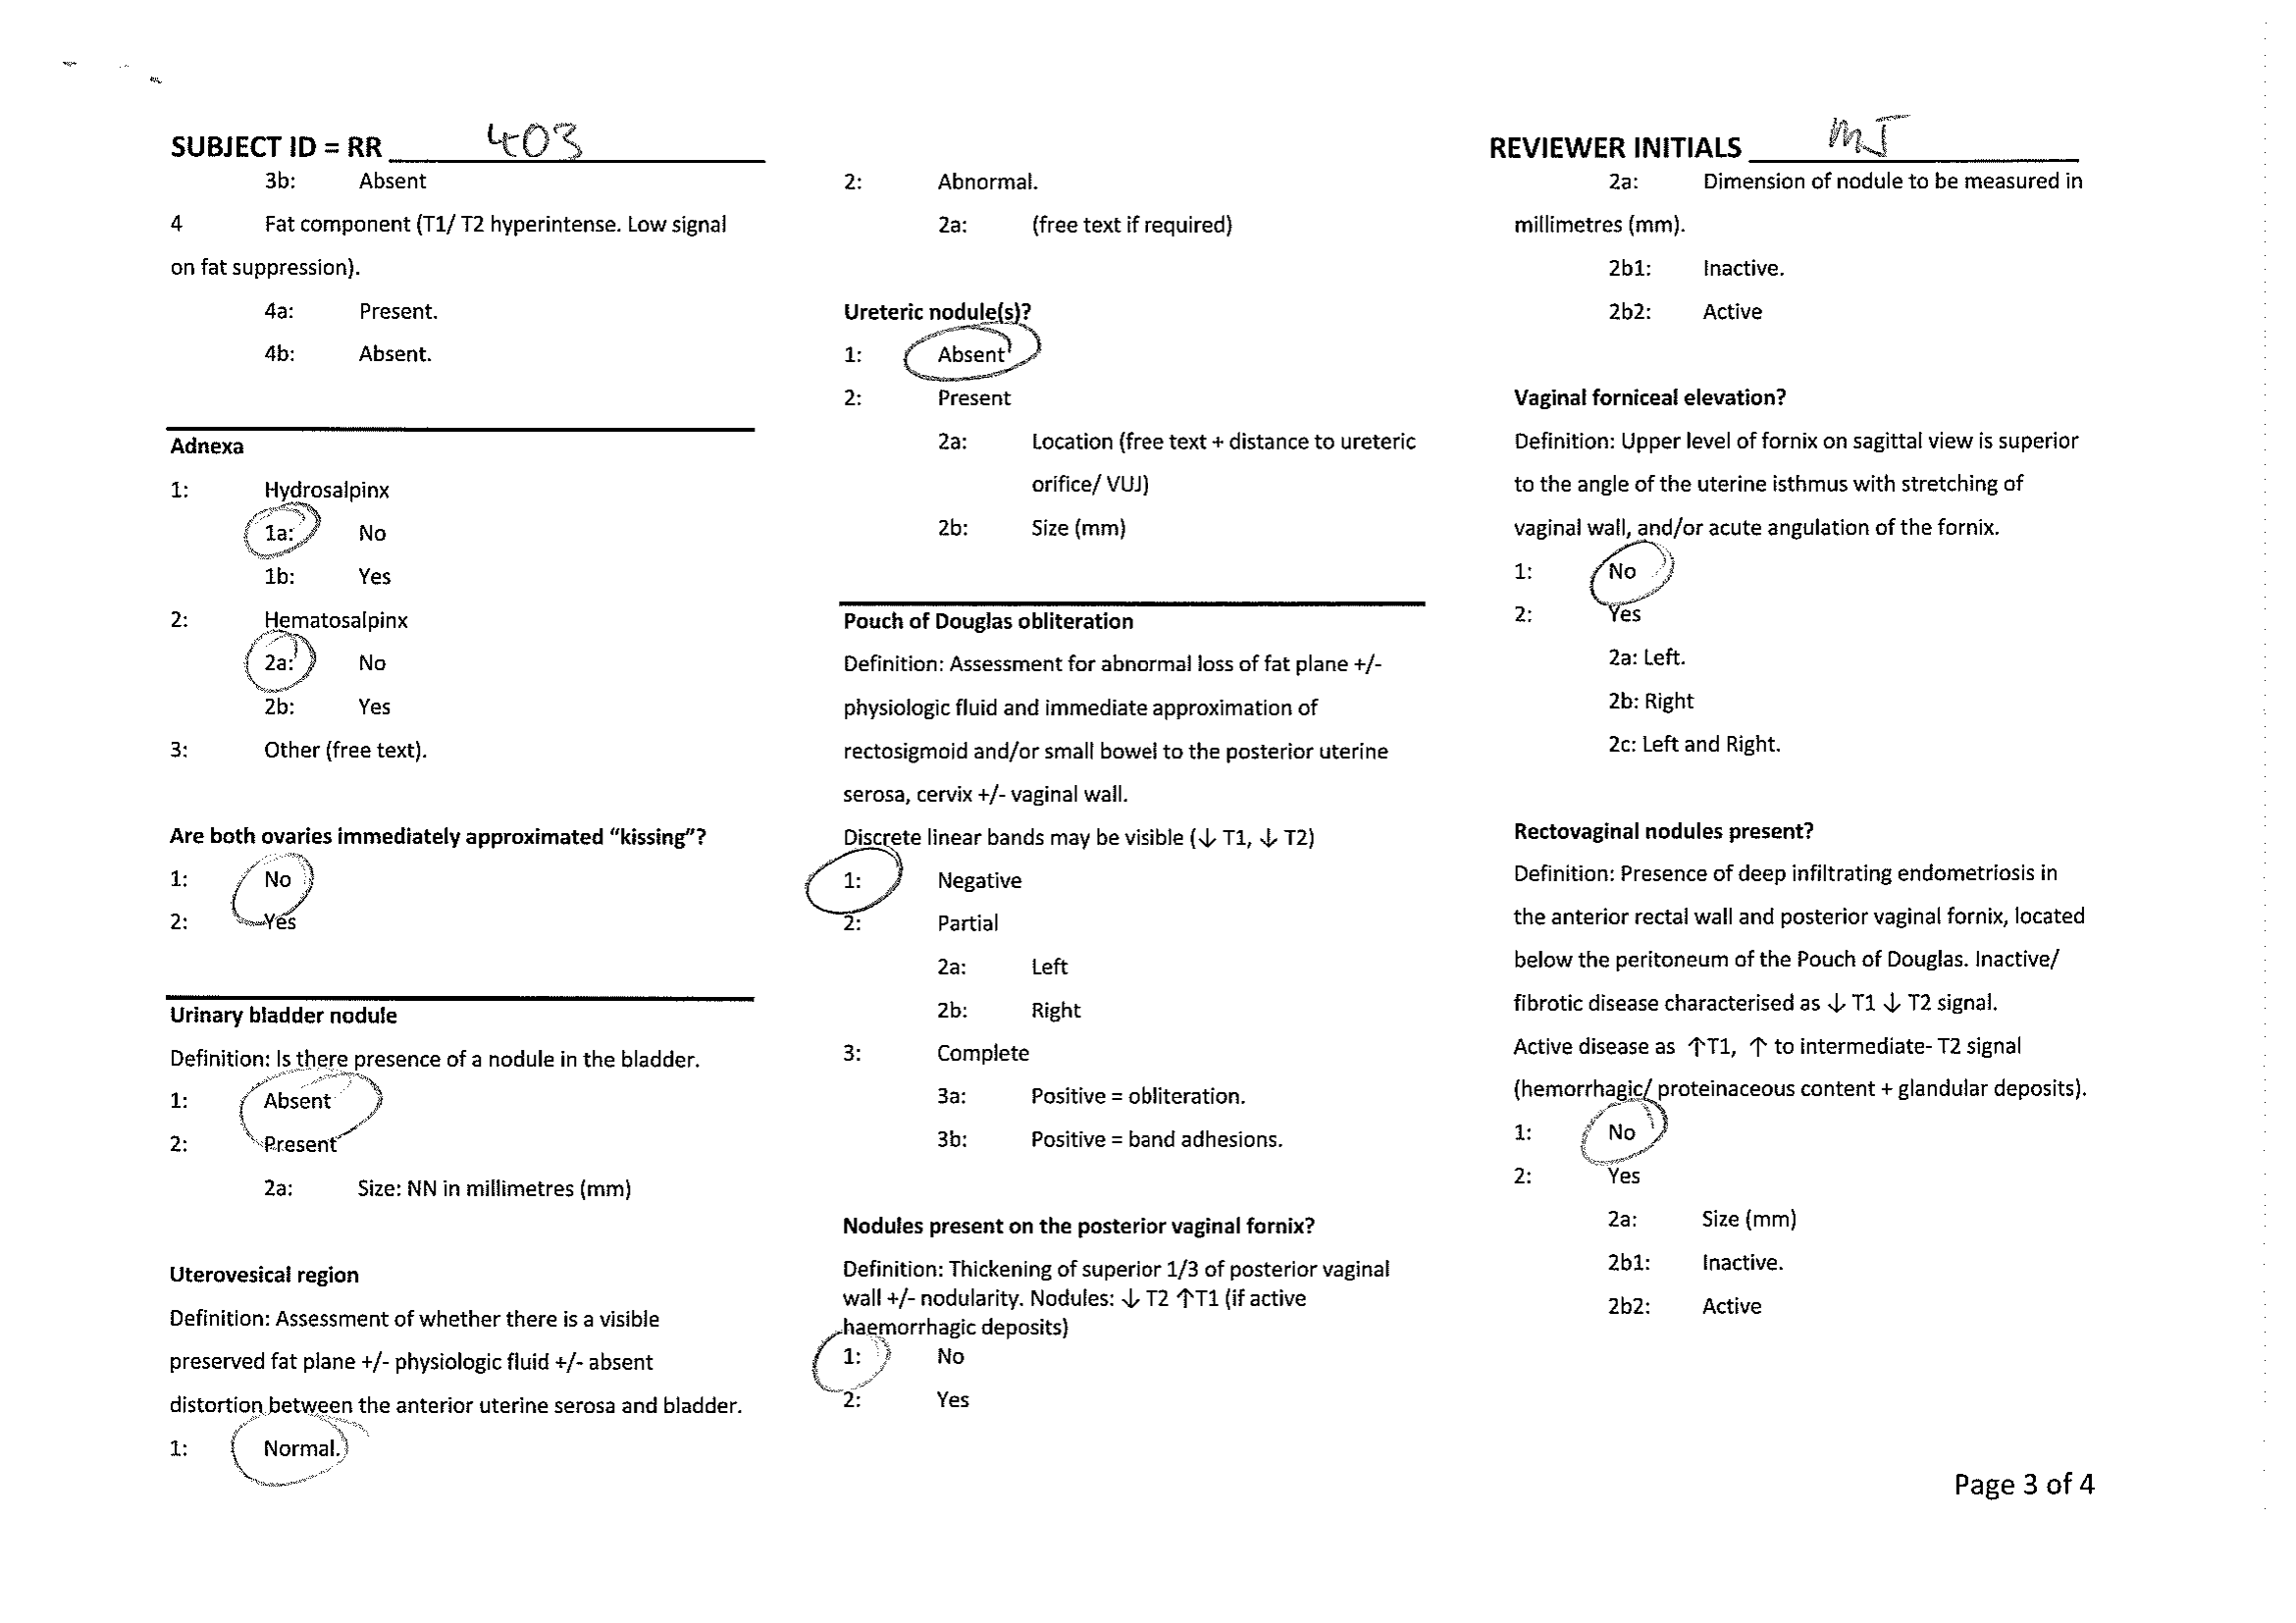 SUBJECT ID = RR 403
REVIEWER INITIALS MJ
3b: Absent
4 Fat component (T1/ T2 hyperintense. Low signal
on fat suppression).
4a: Present.
4b: Absent.
Adnexa
1: Hydrosalpinx
1a: No
1b: Yes
2: Hematosalpinx
2a: No
2b: Yes
3: Other (free text).
Are both ovaries immediately approximated “kissing”?
1: No
2: Yes
Urinary bladder nodule
Definition: Is there presence of a nodule in the bladder.
1: Absent
2: Present
2a: Size: NN in millimetres (mm)
Uterovesical region
Definition: Assessment of whether there is a visible
preserved fat plane +/- physiologic fluid +/- absent
distortion between the anterior uterine serosa and bladder.
1: Normal.
2: Abnormal.
2a: (free text if required)
Ureteric nodule(s)?
1: Absent
2: Present
2a: Location (free text + distance to ureteric
orifice/ VUJ)
2b: Size (mm)
Pouch of Douglas obliteration
Definition: Assessment for abnormal loss of fat plane +/-
physiologic fluid and immediate approximation of
rectosigmoid and/or small bowel to the posterior uterine
serosa, cervix +/- vaginal wall.
Discrete linear bands may be visible (↓ T1, ↓ T2)
1: Negative
2: Partial
2a: Left
2b: Right
3: Complete
3a: Positive = obliteration.
3b: Positive = band adhesions.
Nodules present on the posterior vaginal fornix?
Definition: Thickening of superior 1/3 of posterior vaginal
wall +/- nodularity. Nodules: ↓ T2 ↑T1 (if active
haemorrhagic deposits)
1: No
2: Yes
2a: Dimension of nodule to be measured in
millimetres (mm).
2b1: Inactive.
2b2: Active
Vaginal forniceal elevation?
Definition: Upper level of fornix on sagittal view is superior
to the angle of the uterine isthmus with stretching of
vaginal wall, and/or acute angulation of the fornix.
1: No
2: Yes
2a: Left.
2b: Right
2c: Left and Right.
Rectovaginal nodules present?
Definition: Presence of deep infiltrating endometriosis in
the anterior rectal wall and posterior vaginal fornix, located
below the peritoneum of the Pouch of Douglas. Inactive/
fibrotic disease characterised as ↓ T1 ↓ T2 signal.
Active disease as ↑T1, ↑ to intermediate- T2 signal
(hemorrhagic/ proteinaceous content + glandular deposits).
1: No
2: Yes
2a: Size (mm)
2b1: Inactive.
2b2: Active
Page 3 of 4